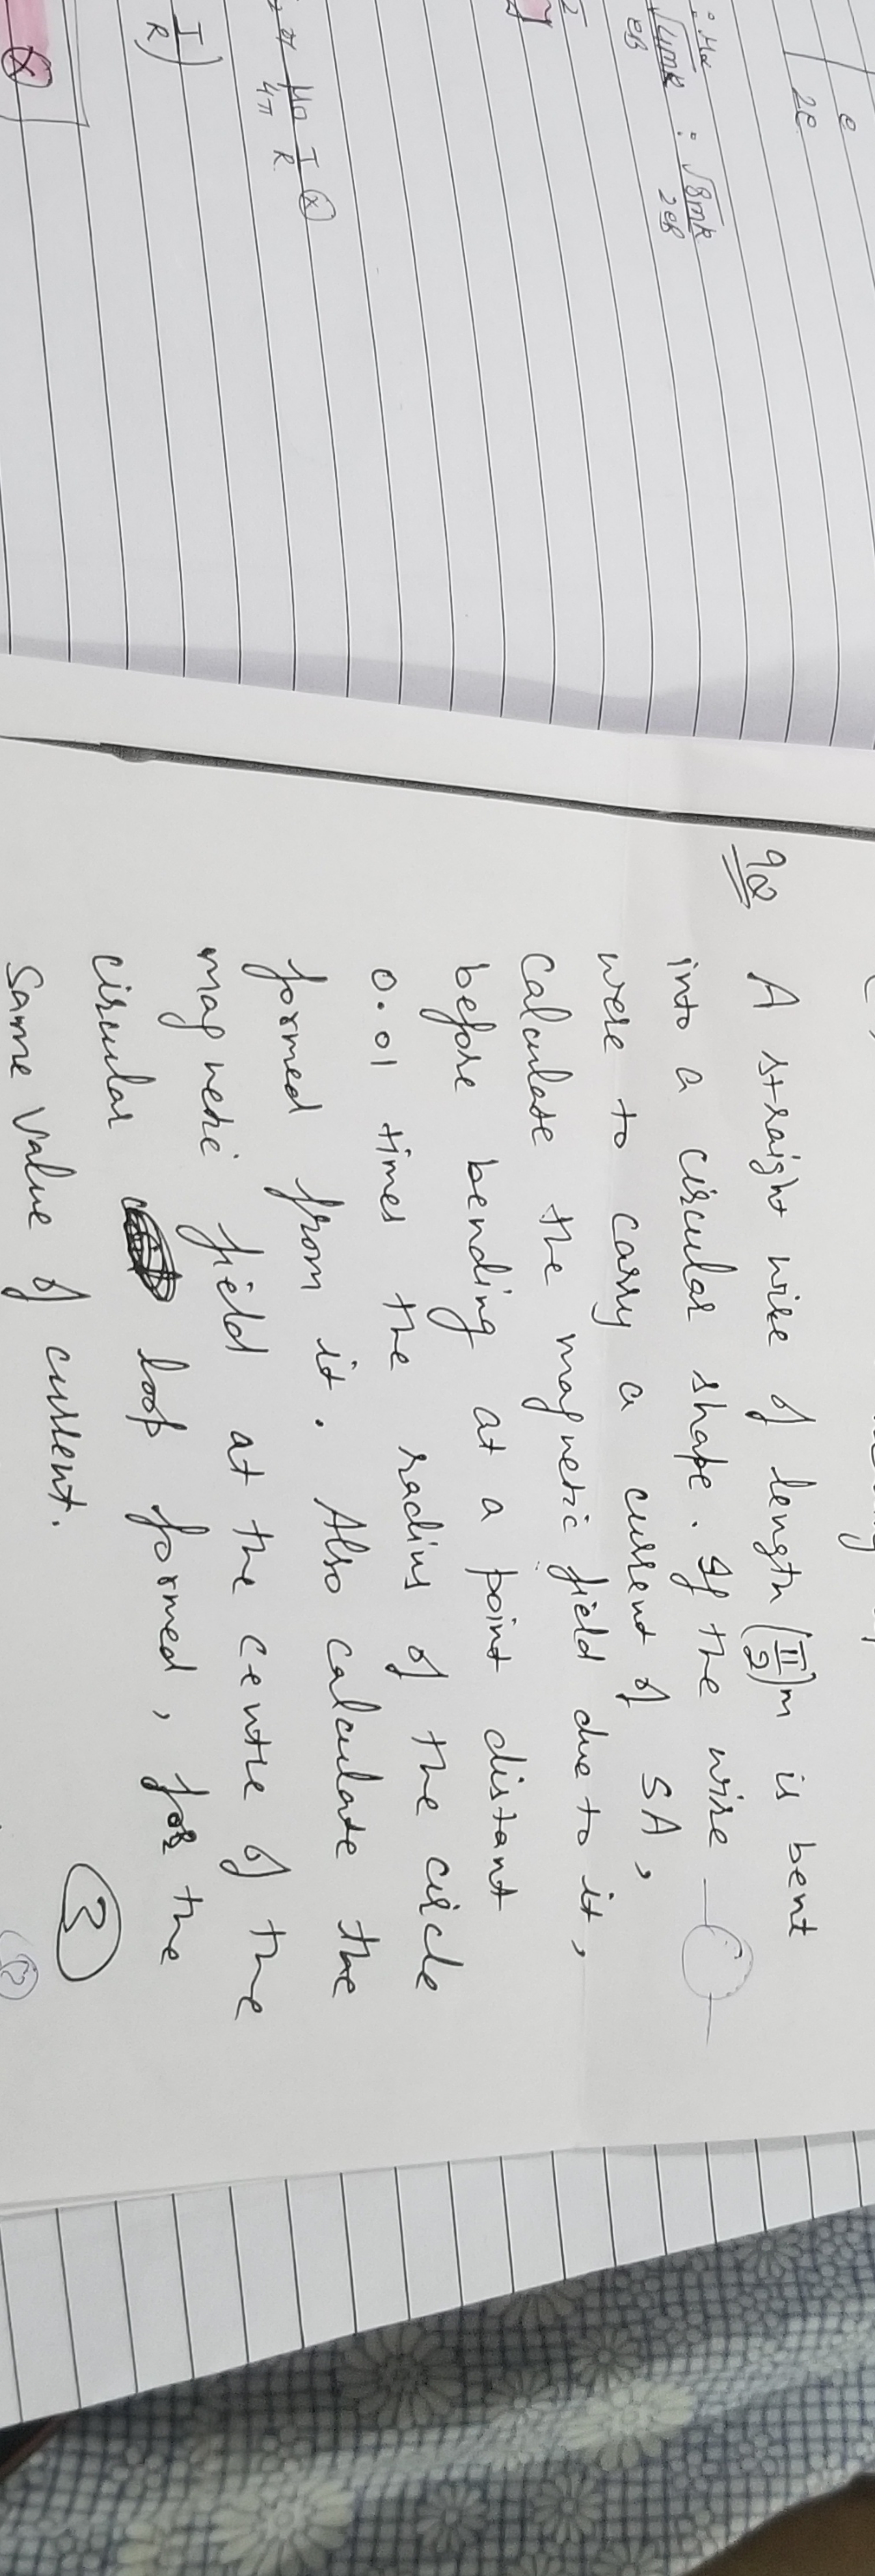 e
2e
√4mk : √8mk
eB 2eB
μ0 I ⊗
4π R
I
R )
98 A straight wire of length (π/2)m is bent
into a circular shape. If the wire
were to carry a current of 5A,
calculate the magnetic field due to it,
before bending at a point distant
0.01 times the radius of the circle
formed from it. Also calculate the
magnetic field at the centre of the
circular loop formed, for the
same value of current.
3
2